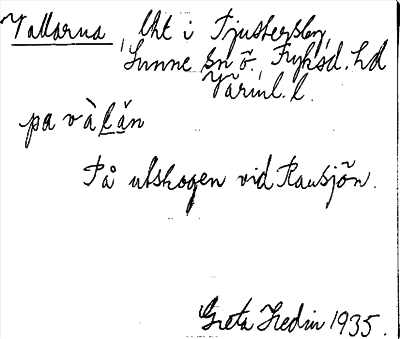 Vallarna, lht i Tjustersby,
Sunne sn ö, Fryksd. hd
Värml. l.
pa vàlăn
På utskogen vid Rausjön.
Greta Hedin 1935.